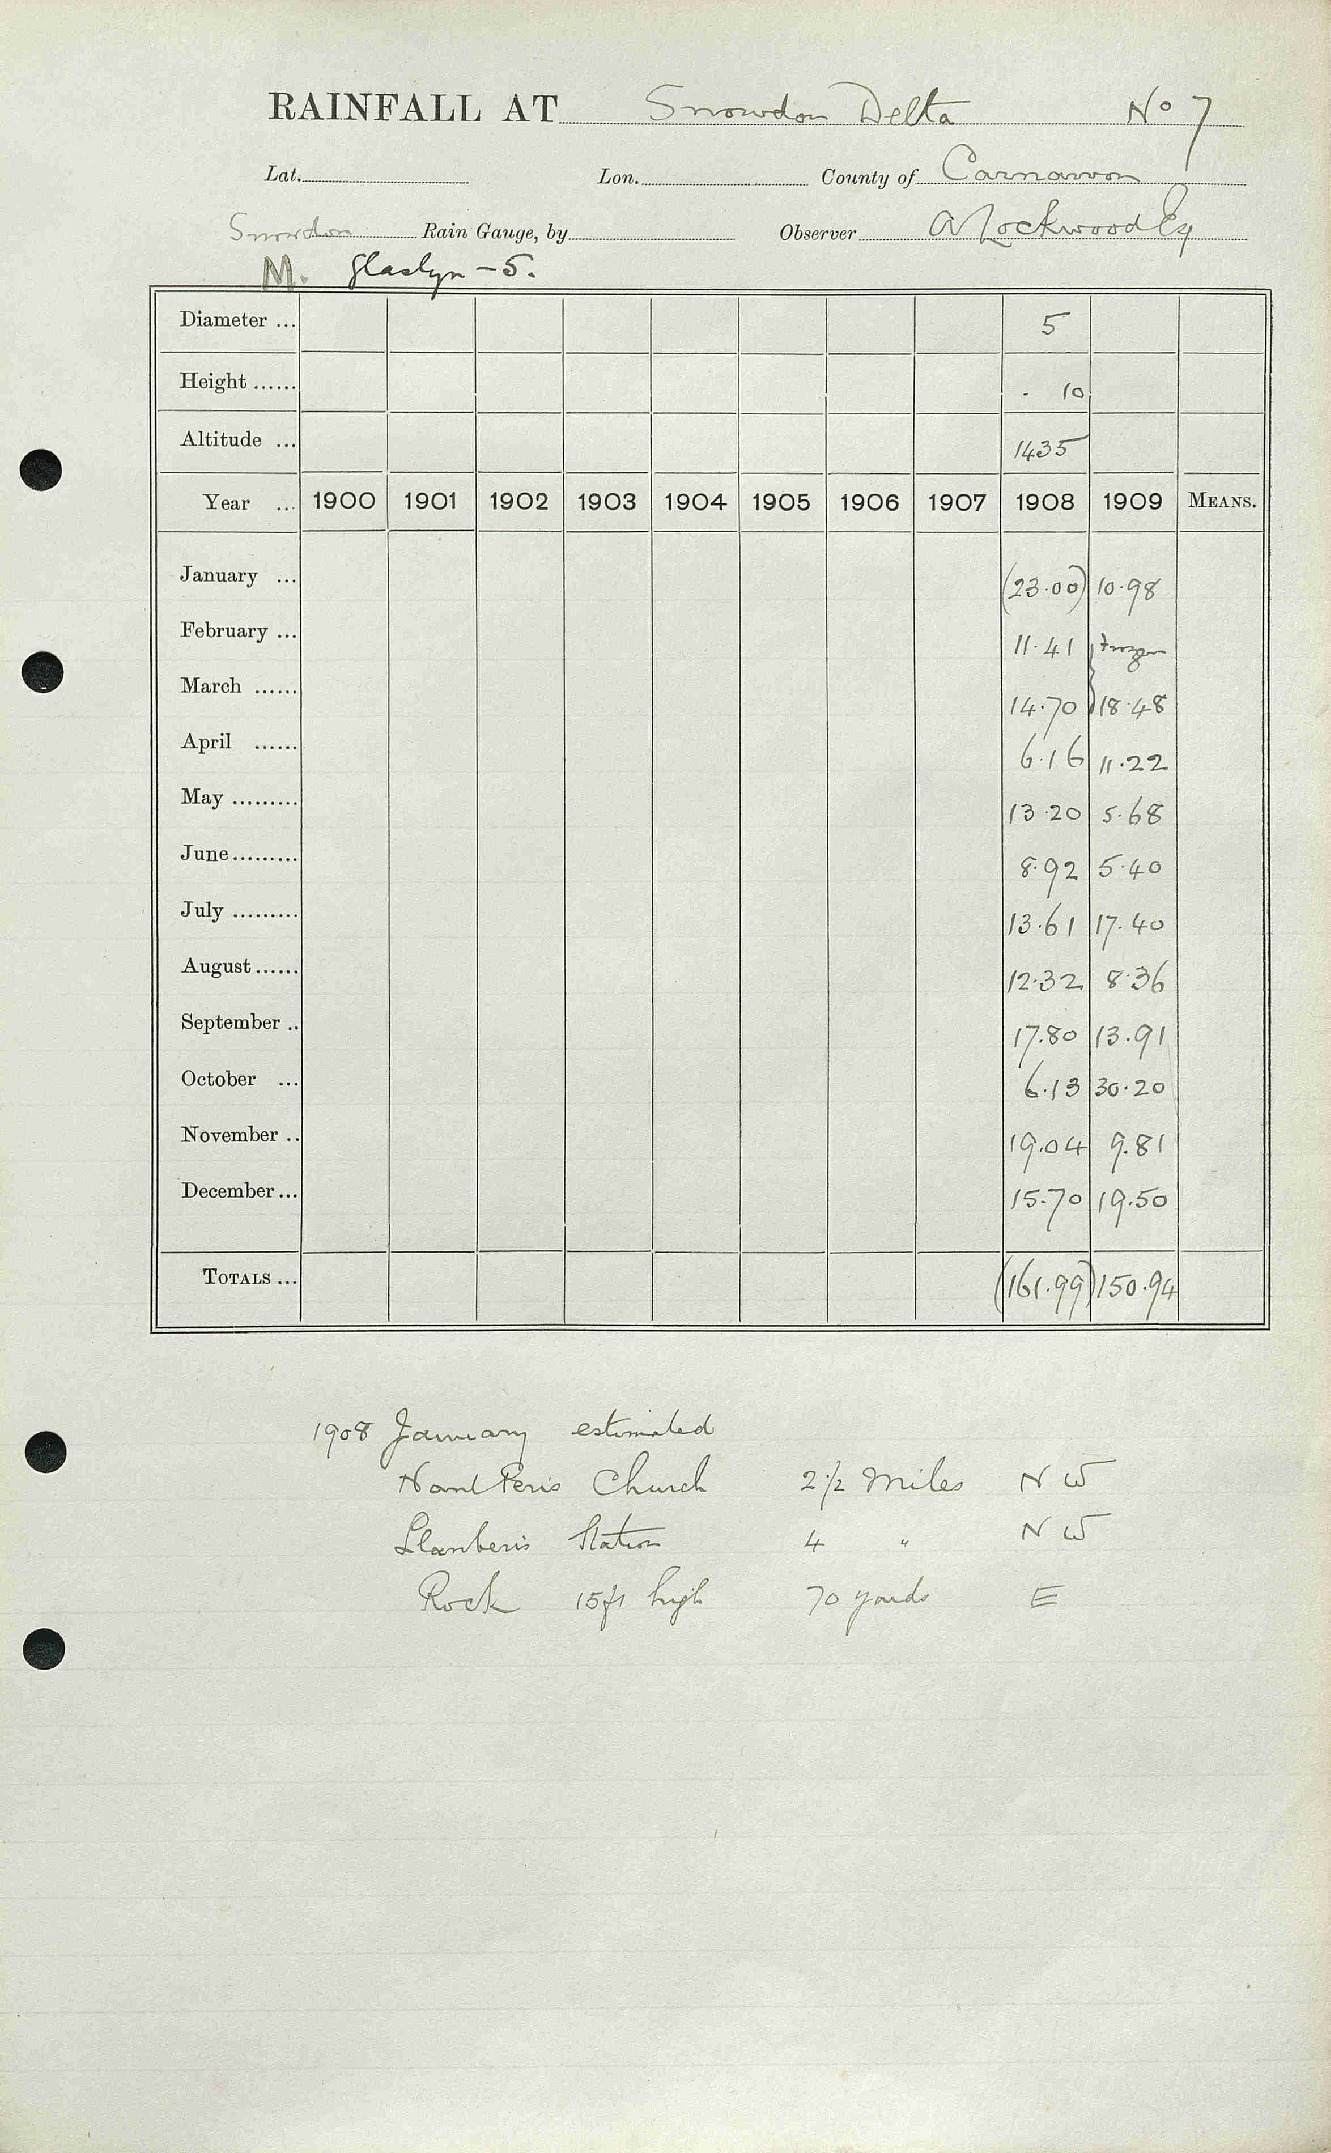 RAINFALL AT Snowdon Delta No 7
Lat. Lon. County of Carnarvon
Snowdon Rain Gauge, by Observer A Lockwood Esq
M. Glaslyn - 5.
Diameter ... 5
Height ...... . 10
Altitude ... 1435
Year ... 1900 1901 1902 1903 1904 1905 1906 1907 1908 1909 MEANS.
January ... (23.00) 10.98
February ... 11.41 Frozen
March ...... 14.70 18.48
April ...... 6.16 11.22
May ......... 13.20 5.68
June ......... 8.92 5.40
July ......... 13.61 17.40
August ...... 12.32 8.36
September .. 17.80 13.91
October ... 6.13 30.20
November .. 19.04 9.81
December ... 15.70 19.50
TOTALS ... (161.99) 150.94
1908 January estimated
Nant Peris Church 2 1/2 Miles N W
Llanberis Station 4 " N W
Rock 15ft high 70 yards E